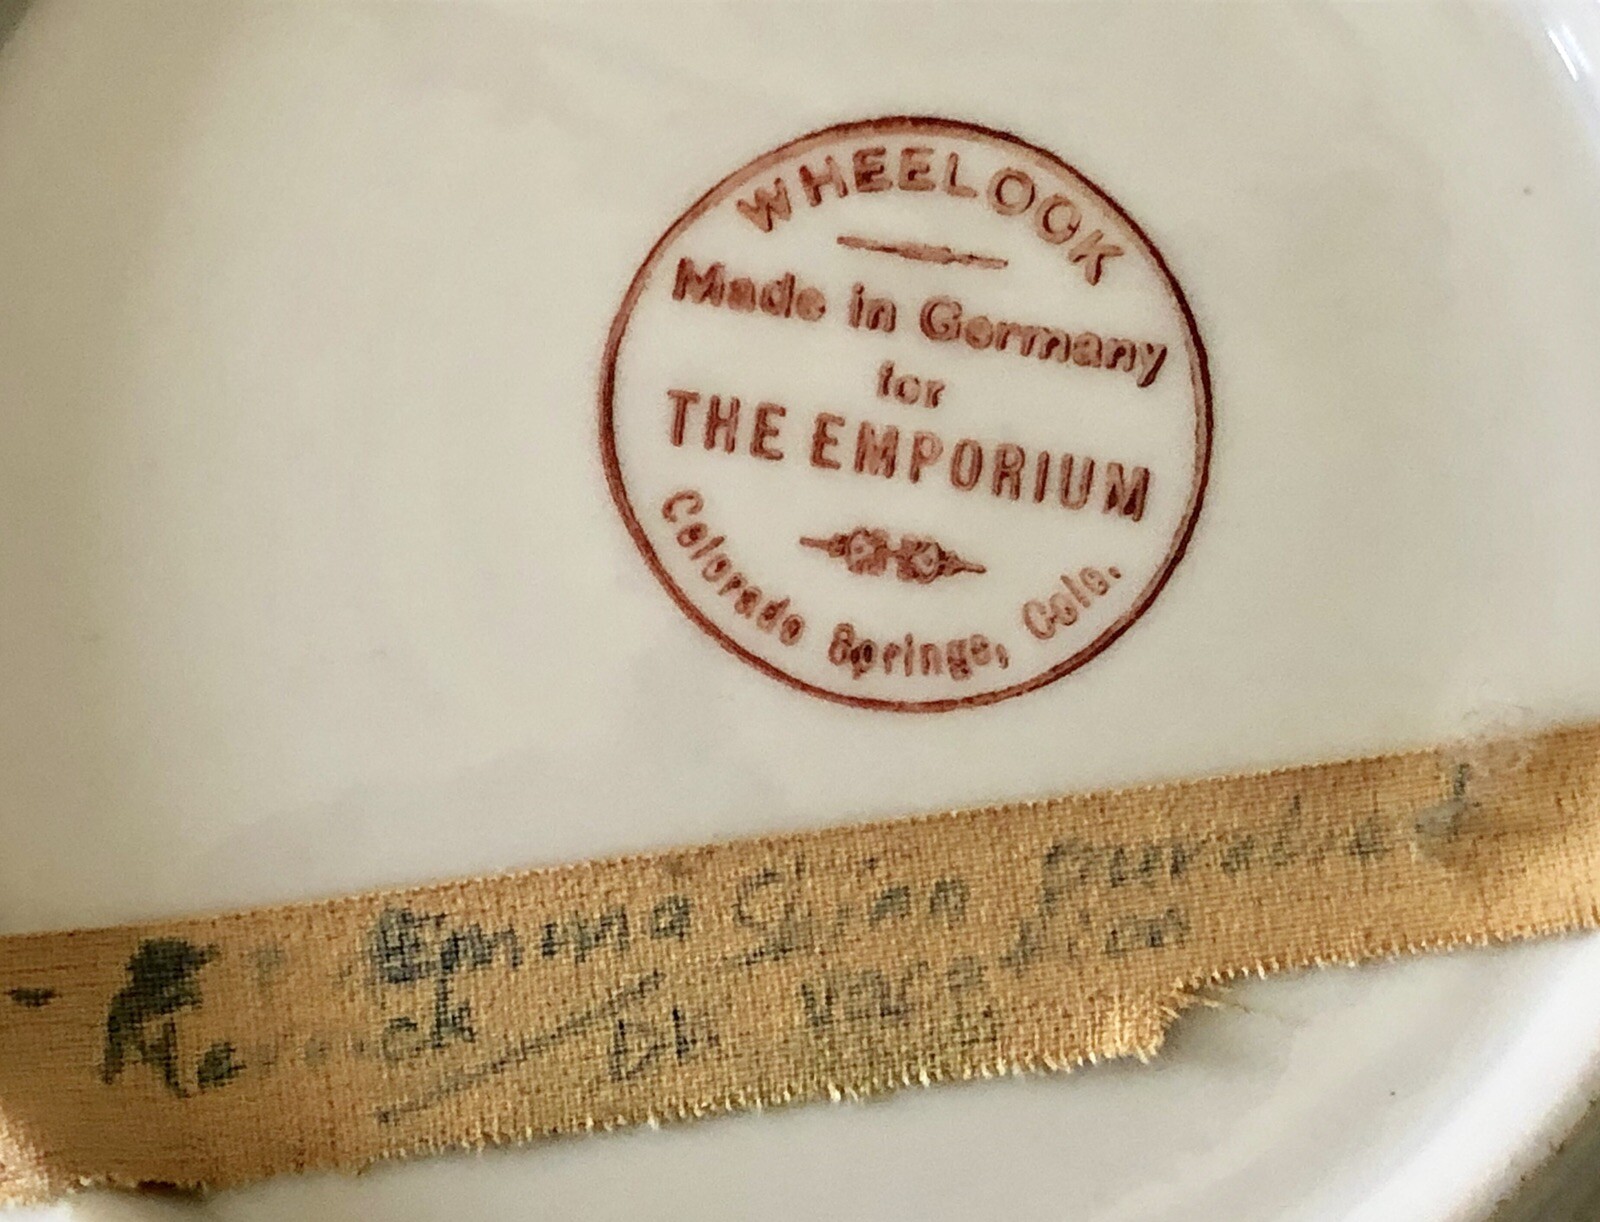 WHEELOCK
Made in Germany
for
THE EMPORIUM
Colorado Springs, Colo.
Emma
Vacation